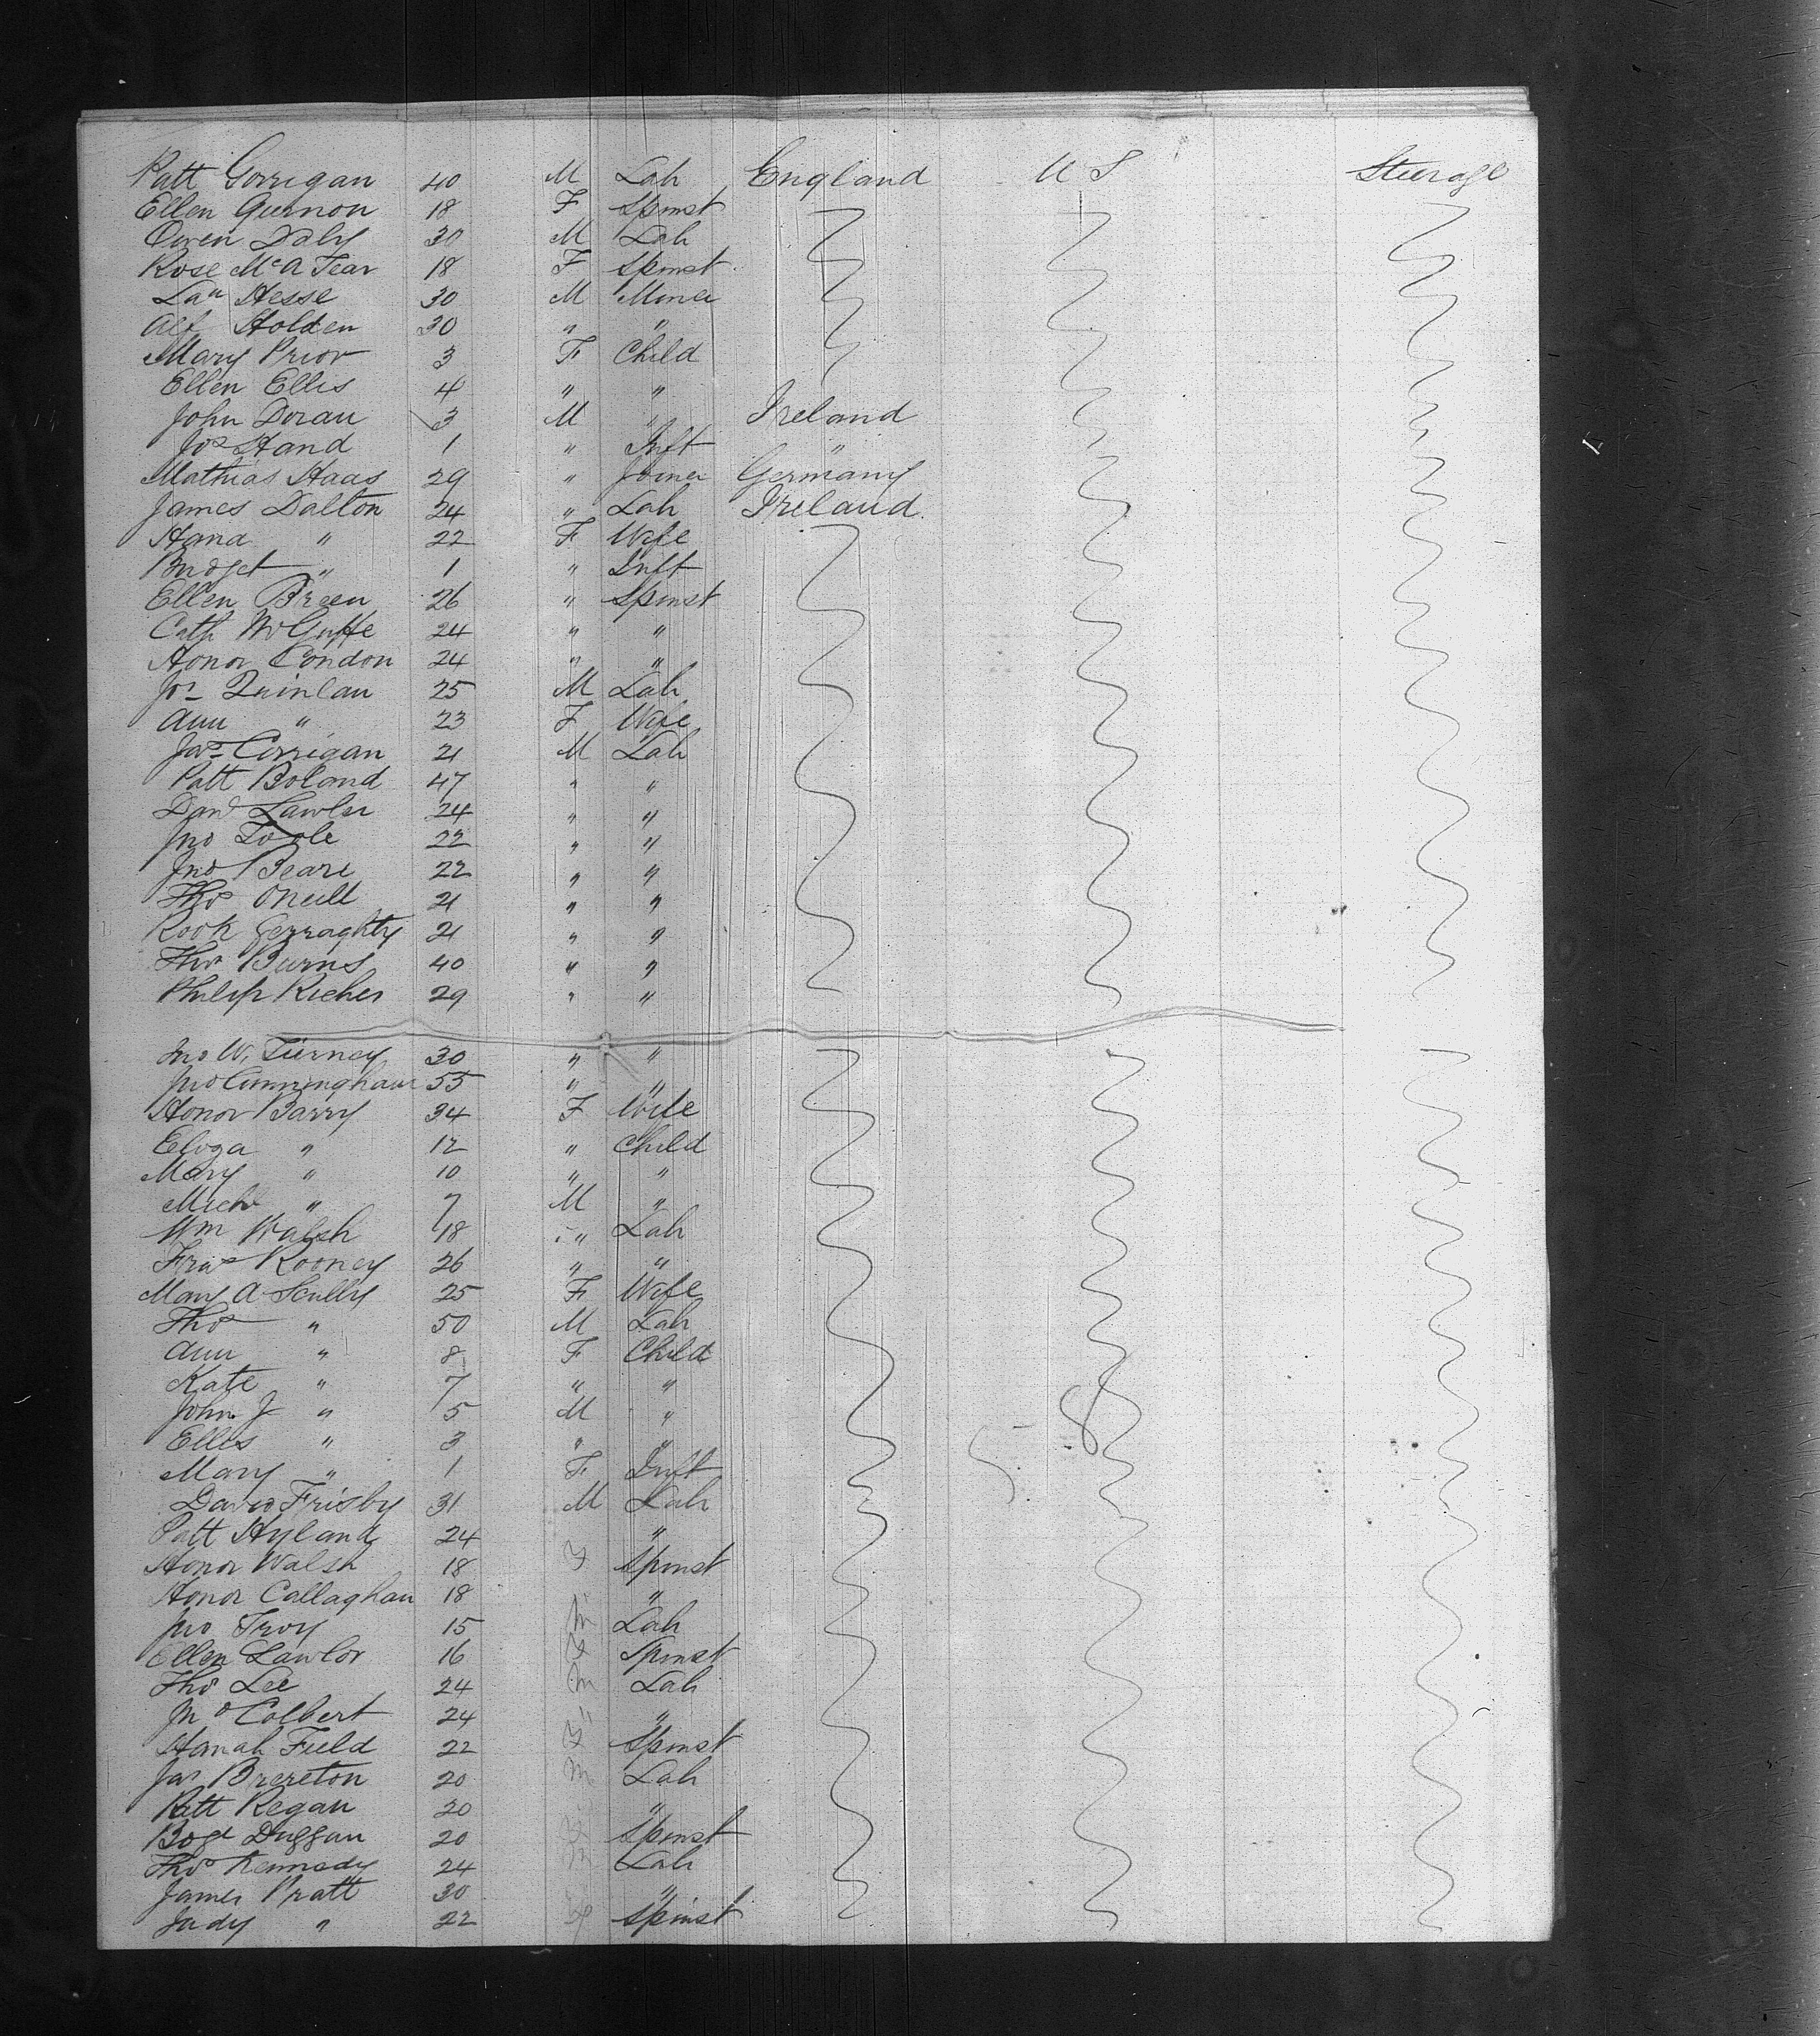 Patt Gorrigan 40 M Lab England U S Steerage
Ellen Gurnon 18 F Spinst
Owen Daly 30 M Lab
Rose McA Tear 18 F Spinst
Hesse 30 M Miner
Alf Holden 30 " "
Mary Prior 3 F Child
Ellen Ellis 4 " "
John Doran 3 M " Ireland
Jos Hand 1 " Inft "
Mathias Haas 29 " Joiner Germany
James Dalton 24 " Lab Ireland
Hana " 22 F Wife
Bridget " 1 " Inft
Ellen Breen 26 " Spinst
Cath McGuffe 24 " "
Honor Condon 24 " "
Jos Quinlan 25 M Lab
Ann " 23 F Wife
Jas Corrigan 21 M Lab
Patt Boland 47 " "
Danl Lawler 24 " "
Jno Toole 22 " "
Jno Beare 22 " "
Thos ONeill 21 " "
Gerraghty 21 " "
Thos Burns 40 " "
Philip Riches 29 " "
Jno W. Tierney 30 " "
Jno Cunningham 55 " "
Honor Barry 34 F Wife
Eliza " 12 " Child
Mary " 10 " "
Michl " 7 M "
Wm Walsh 18 " Lab
Fras Rooney 26 " "
Mary A Scully 25 F Wife
Thos " 50 M Lab
Ann " 8 F Child
Kate " 7 " "
John J " 5 M "
Ellis " 3 " "
Mary " 1 F Inft
David Frisby 31 M Lab
Patt Hyland 24 "
Honor Walsh 18 F Spinst
Honor Callaghan 18 "
Jno Troy 15 M Lab
Ellen Lawlor 16 F Spinst
Thos Lee 24 M Lab
Jno Colbert 24 " "
Hanah Field 22 F Spinst
Jas Brereton 20 M Lab
Patt Regan 20 "
Duggan 20 Spinst
Thos Kennedy 24 M Lab
James Pratt 30 "
Judy " 22 F Spinst